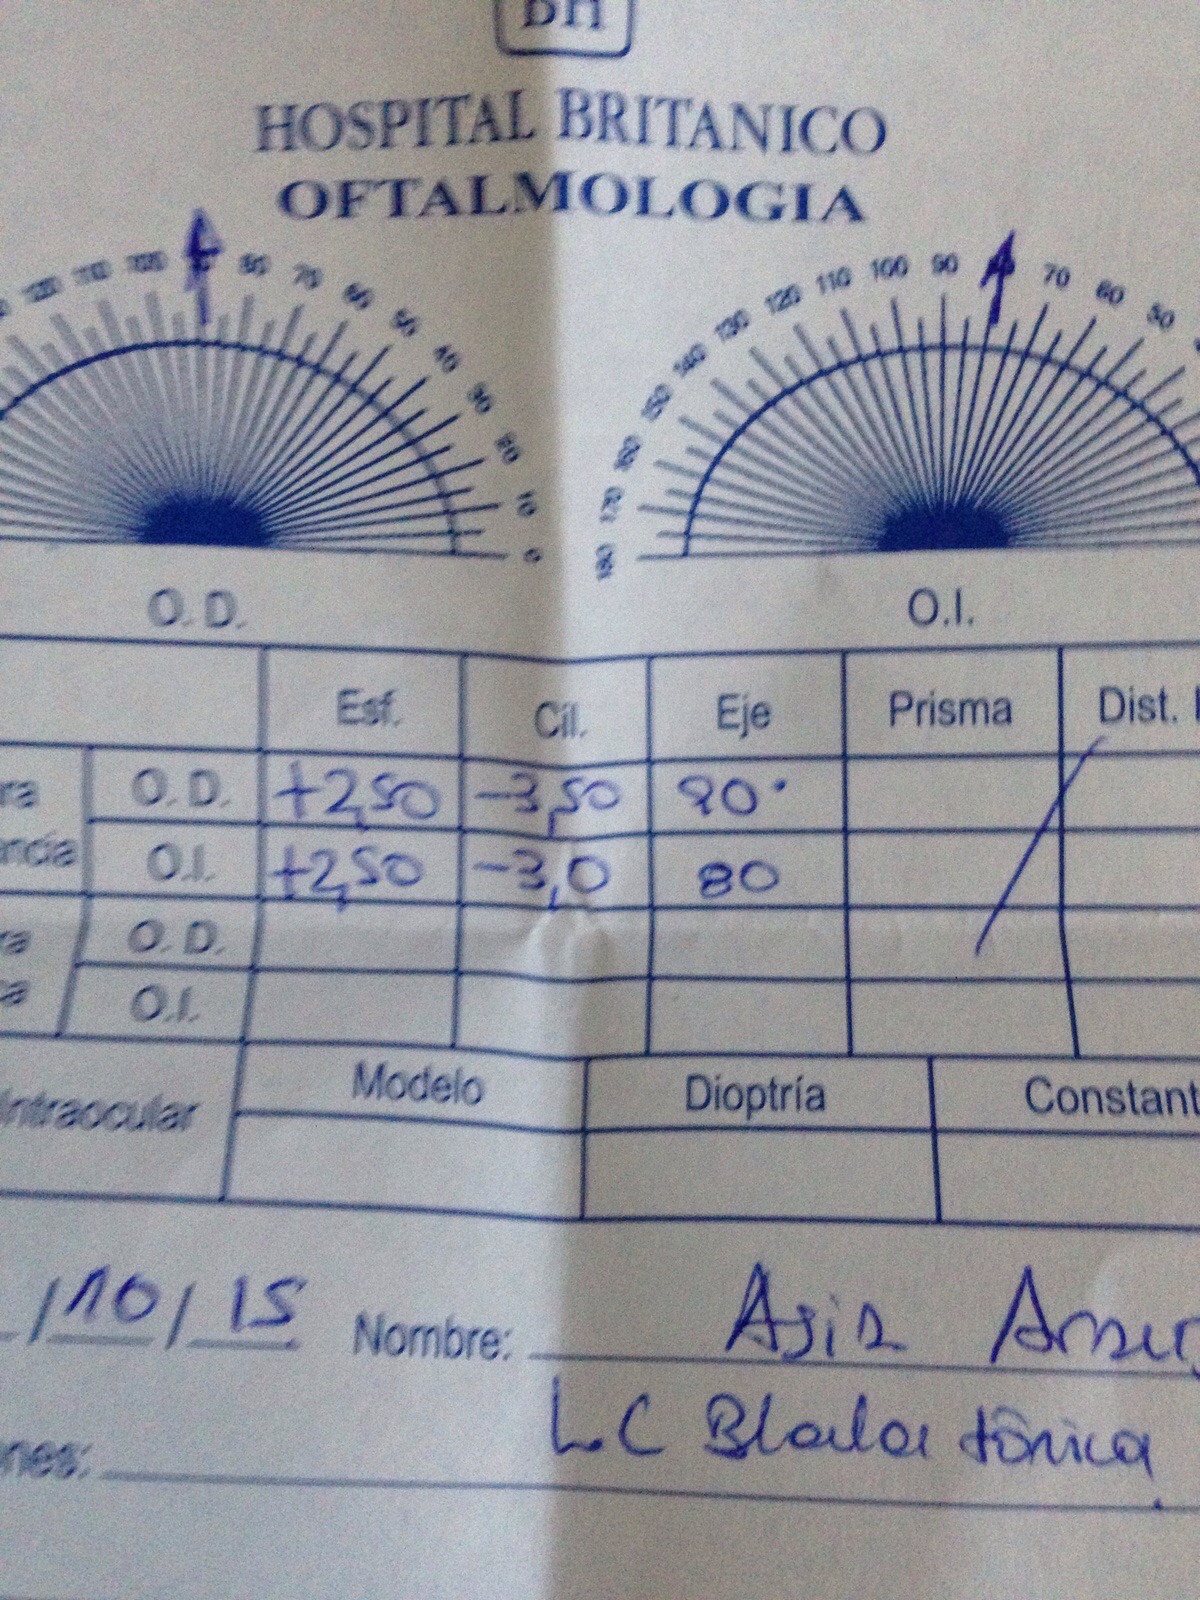 BH
HOSPITAL BRITANICO
OFTALMOLOGIA
120 110 100 80 70 60 50 40 30 20 10 0
180 170 160 150 140 130 120 110 100 90 70 60 50
O.D. O.I.
Esf. Cil. Eje Prisma Dist.
O.D. +2,50 -3,50 90°
O.I. +2,50 -3,0 80
O.D.
O.I.
Intraocular Modelo Dioptría Constant
/10/15 Nombre:
LC tónica